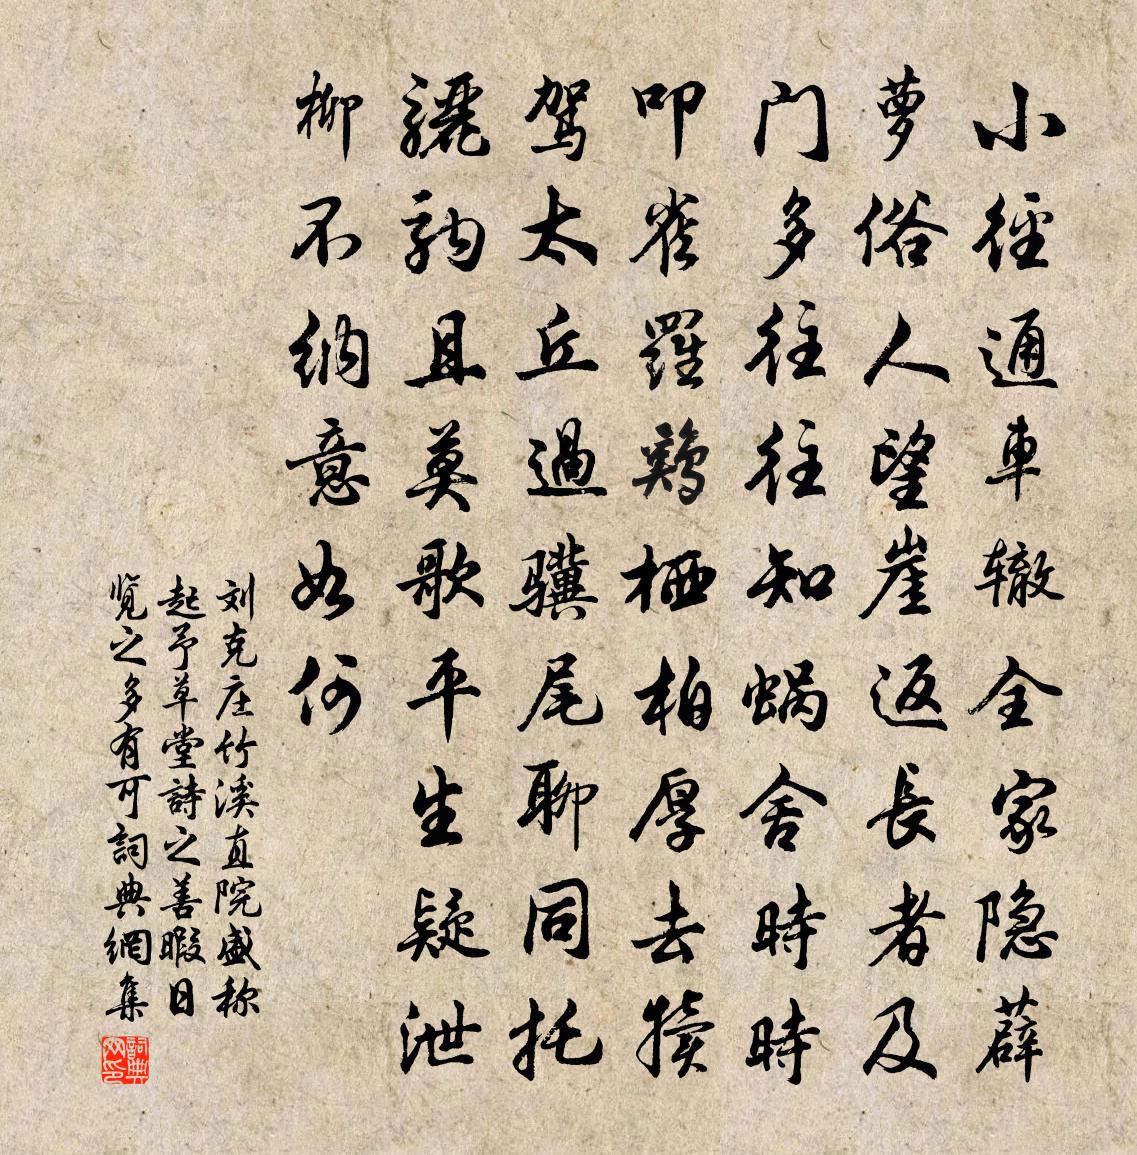 小徑通車辙全家隐薜
萝俗人望崖返長者及
门多往往知蜗舍時時
叩雀羅鷄栖柏厚去犢
駕太丘過骥尾聊同托
驪駒且莫歌平生疑泄
柳不纳意如何
刘克庄竹溪直院盛称
起予草堂詩之善暇日
覧之多有可詞典網集
詞典网印